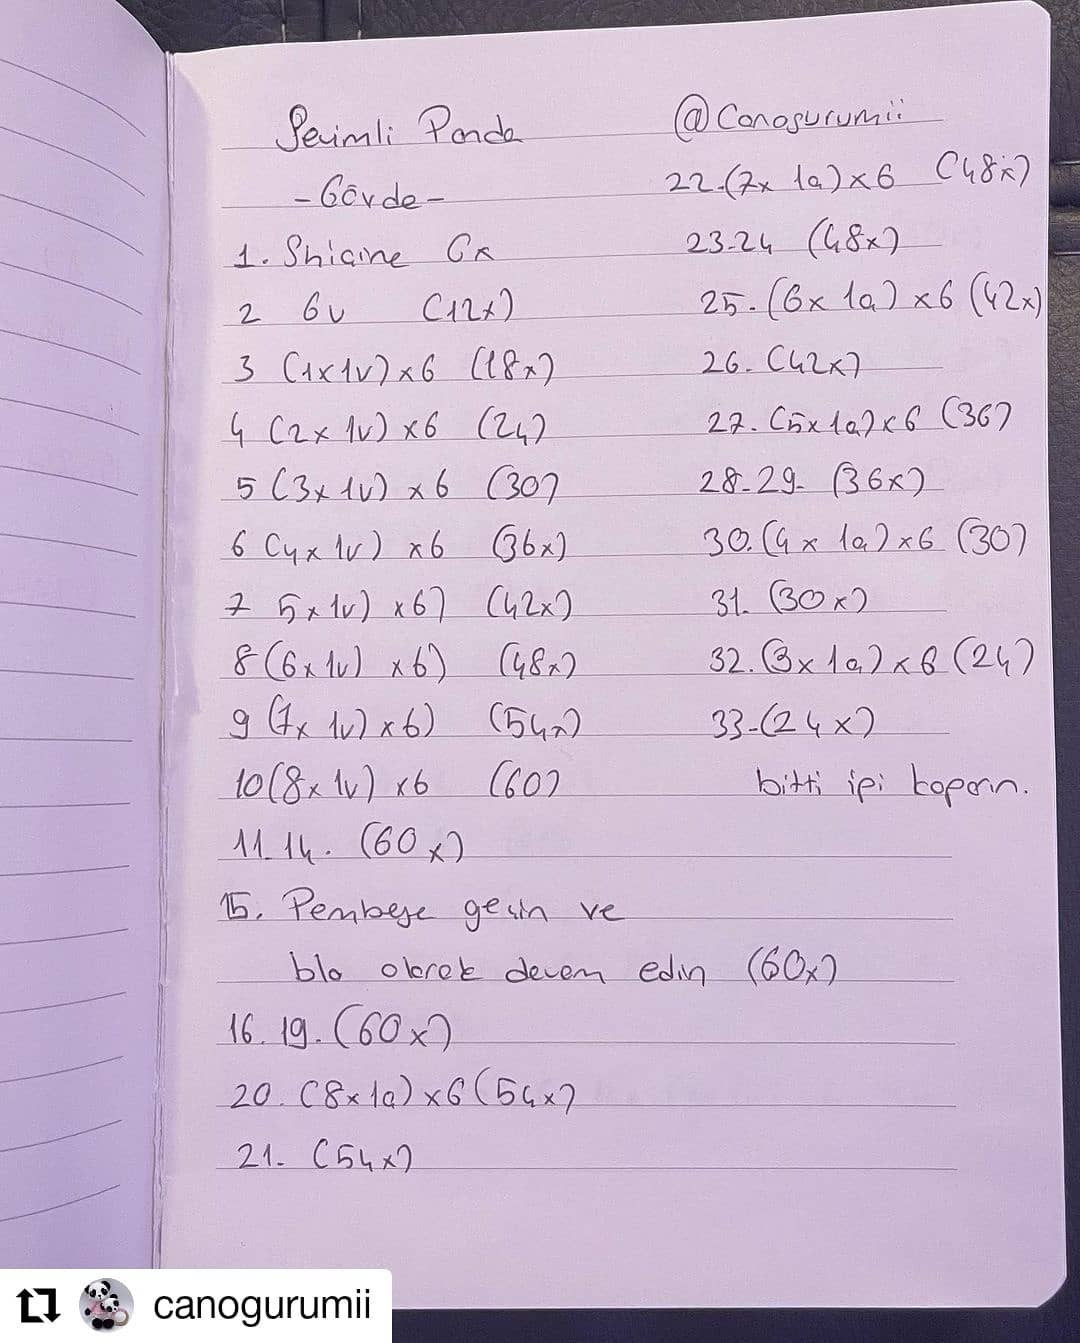 Sevimli Panda
-Gövde-
1. Shigine 6x
2 6v (12x)
3 (1x1v)x6 (18x)
4 (2x 1v) x6 (24)
5 (3x 1v) x6 (30)
6 (4x 1v) x6 (36x)
7 5x1v) x6) (42x)
8 (6x 1v) x6) (48x)
9 (7x 1v) x6) (54x)
10(8x 1v) x6 (60)
11.14. (60x)
15. Pembeye geçin ve
blo olarak devam edin (60x)
16. 19. (60x)
20. (8x 1a) x6 (54x)
21. (54x)
@Canogurumii
22-(7x 1a)x6 (48x)
23-24 (48x)
25. (6x 1a) x6 (42x)
26. (42x)
27. (5x 1a)x6 (36)
28-29- (36x)
30. (4x 1a)x6 (30)
31. (30x)
32. (3x 1a)x6 (24)
33-(24x)
bitti ipi koparın.
canogurumii